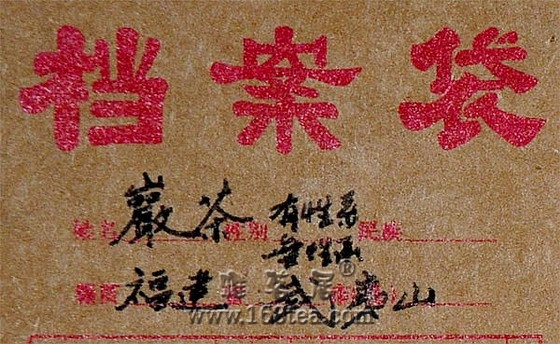 档案袋
姓名 巖茶 性别 有性系 民族
无性系
籍贯 福建 武夷山
www.168tea.com